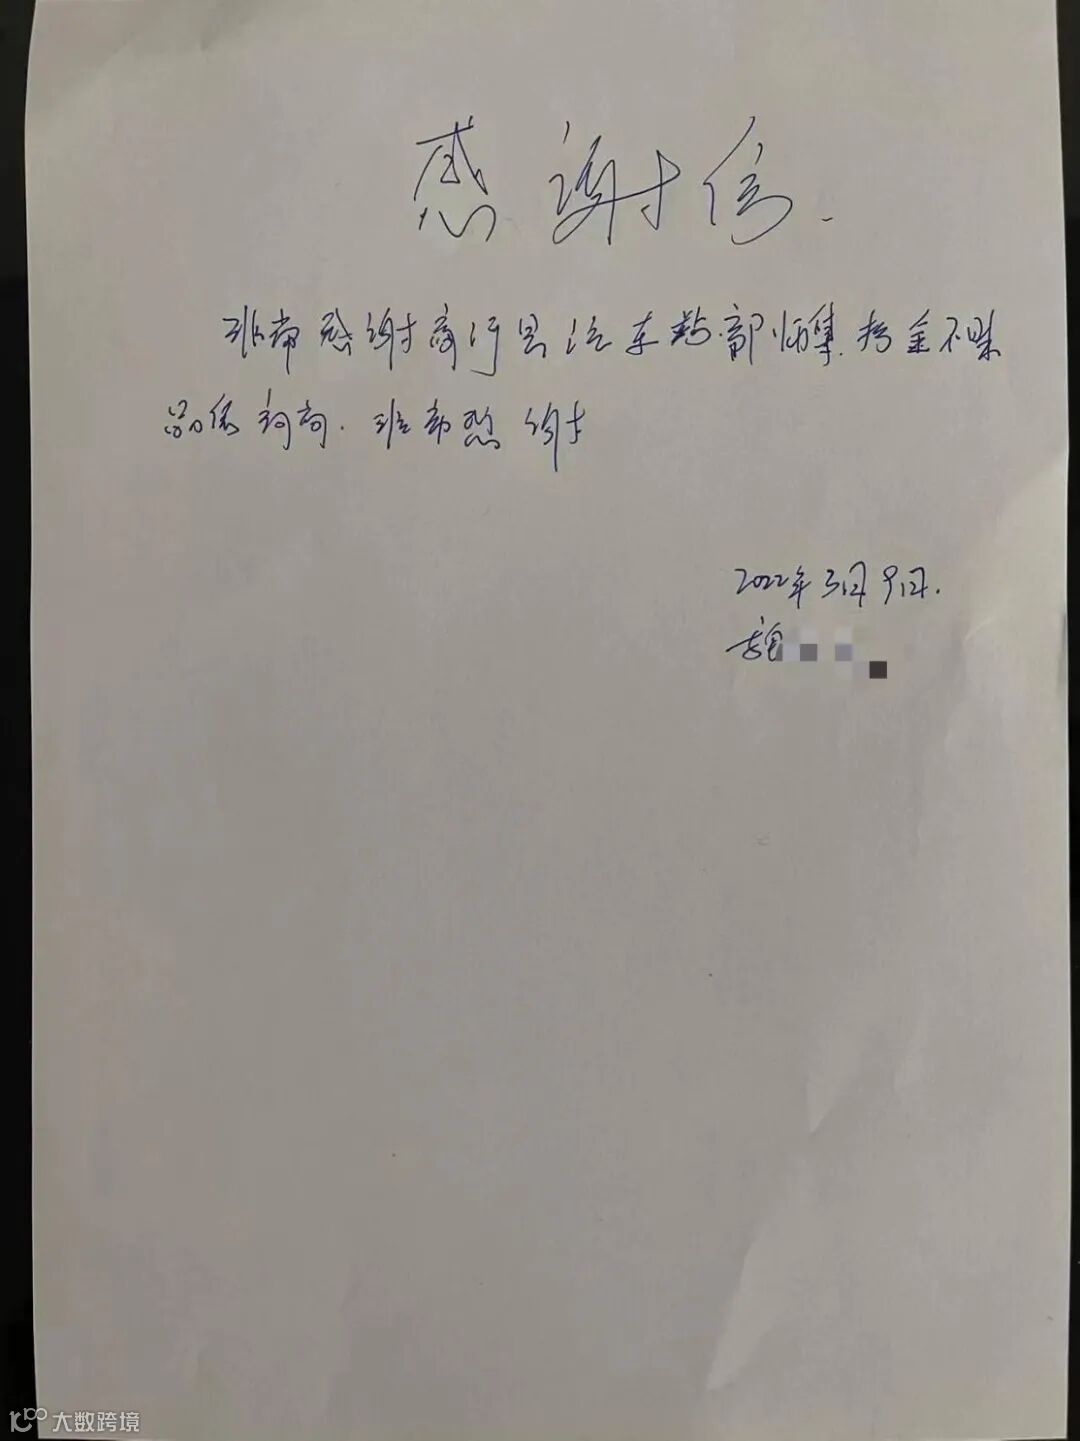 感谢信.
非常感谢商河县汽车站部炳集.拾金不昧
品德高尚.非常感谢
2022年3月9日.
魏
大数跨境